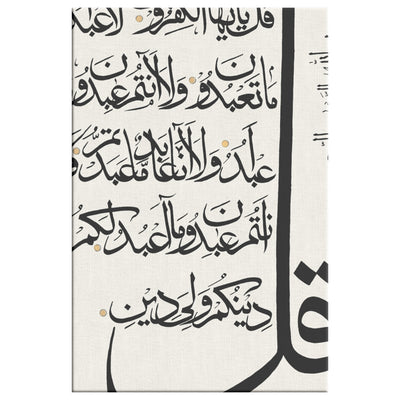 قل يايها الكفرون لا اعبد
ما تعبدون ولا انتم عبدون
اعبد ولا انا عابد ما عبدتم و
انتم عبدون ما اعبد لكم
دينكم ولى دين
قل